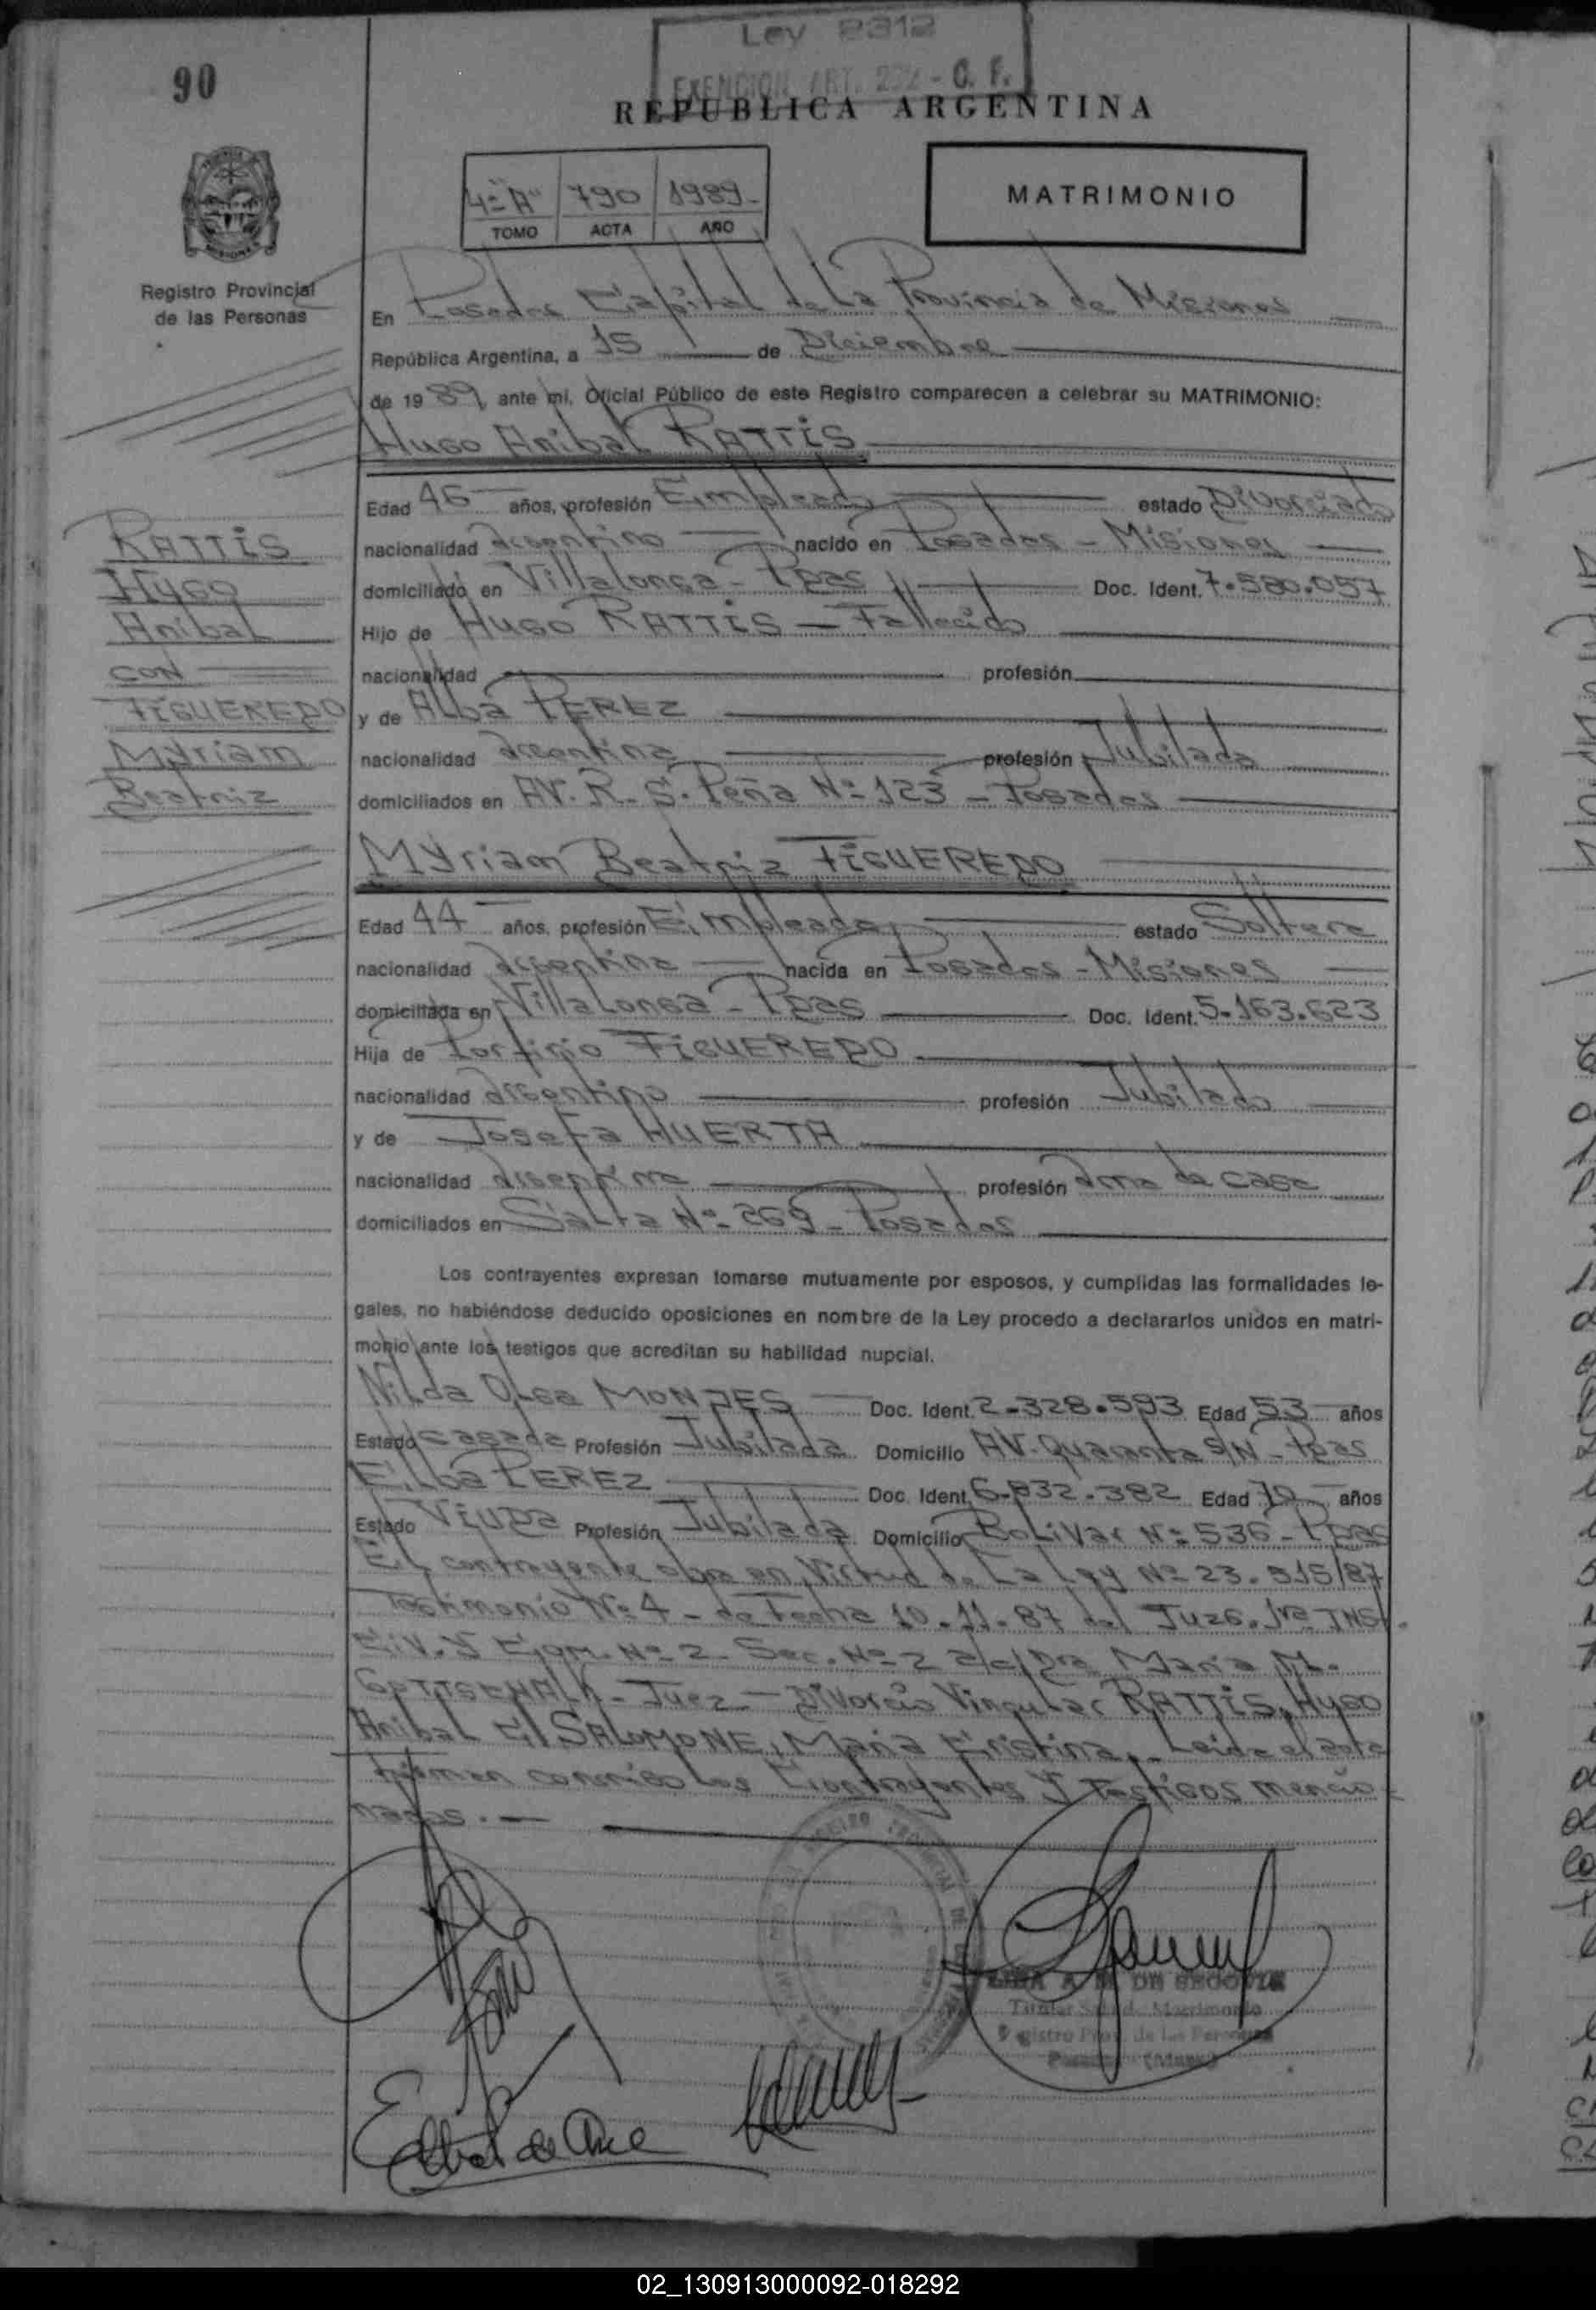 Ley 2312
EXENCION ART. 292 - C. F.
90
REPUBLICA ARGENTINA
4º "A" 790 1989
TOMO ACTA AÑO
MATRIMONIO
Registro Provincial
de las Personas
En Posadas Capital de la Provincia de Misiones
República Argentina, a 15 de Diciembre
de 1989, ante mi, Oficial Público de este Registro comparecen a celebrar su MATRIMONIO:
Hugo Anibal RATTIS
Edad 46 años, profesión Empleado estado Divorciado
nacionalidad argentino nacido en Posadas - Misiones
domiciliado en Villalonga - Ppas Doc. Ident. 7.580.057
Hijo de Hugo RATTIS - Fallecido
nacionalidad profesión
y de Alba PEREZ
nacionalidad argentina profesión Jubilada
domiciliados en AV. R. S. Peña Nº 123 - Posadas
RATTIS
Hugo
Anibal
CON
FIGUEREDO
Myriam
Beatriz
Myriam Beatriz FIGUEREDO
Edad 44 años, profesión Empleada estado Soltera
nacionalidad argentina nacida en Posadas - Misiones
domiciliada en Villalonga - Ppas Doc. Ident. 5.163.623
Hija de Porfirio FIGUEREDO
nacionalidad argentino profesión Jubilado
y de Josefa HUERTA
nacionalidad argentina profesión ama de casa
domiciliados en Salta Nº 269 - Posadas
Los contrayentes expresan tomarse mutuamente por esposos, y cumplidas las formalidades le-
gales, no habiéndose deducido oposiciones en nombre de la Ley procedo a declararlos unidos en matri-
monio ante los testigos que acreditan su habilidad nupcial.
Nilda Olga MONJES Doc. Ident. 2.328.593 Edad 53 años
Estado casada Profesión Jubilada Domicilio AV. Quaranta S/N - Ppas
Elba PEREZ Doc. Ident. 6.832.382 Edad 70 años
Estado Viuda Profesión Jubilada Domicilio Bolivar Nº 536 - Ppas
El contrayente obra en Virtud de La Ley Nº 23.515/87
Testimonio Nº 4 - de Fecha 10-11-87 del Juzg. 1ra INST.
CIV. y Com. Nº 2 Sec. Nº 2 a/c/Dra Maria M.
GOTTSCHALK - Juez - Divorcio Vincular RATTIS, Hugo
Anibal C/ SALOMONE, Maria Cristina.- Leida el acta
firman conmigo los Contrayentes y testigos mencio-
nados.-
Titular Sec. de Matrimonio
Registro Prov. de las Personas
02_130913000092-018292